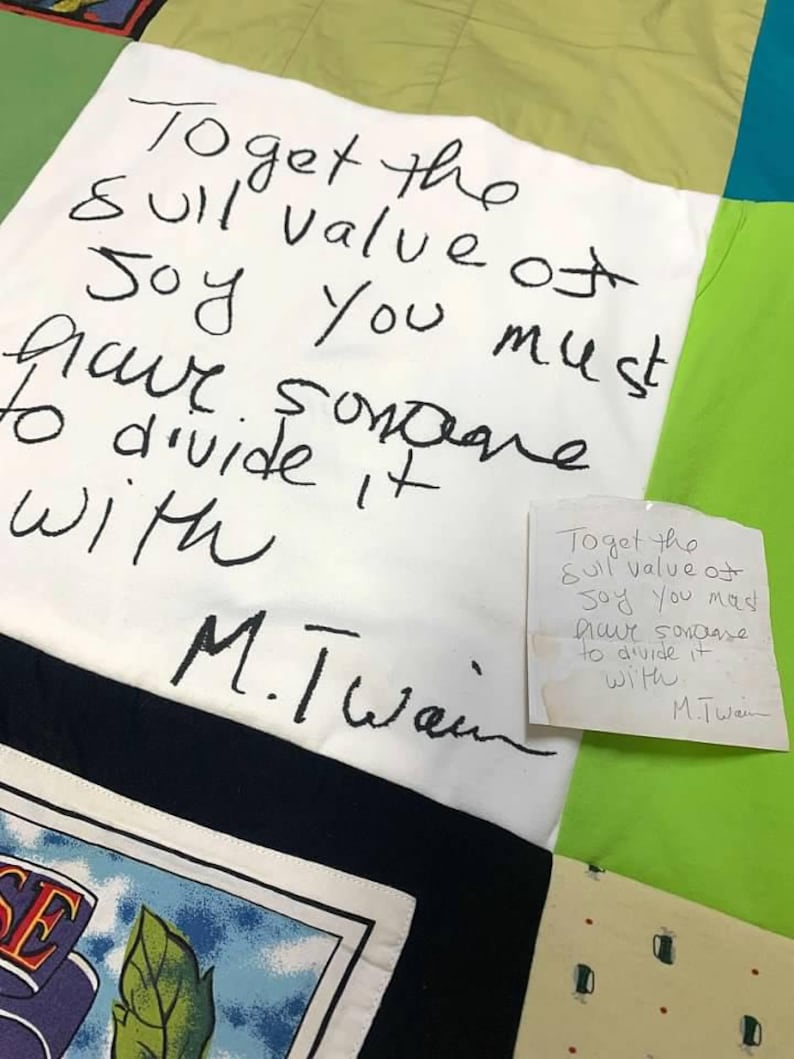 To get the
full value of
joy you must
have someone
to divide it
with
M. Twain
To get the
full value of
joy you must
have someone
to divide it
with
M. Twain
SE